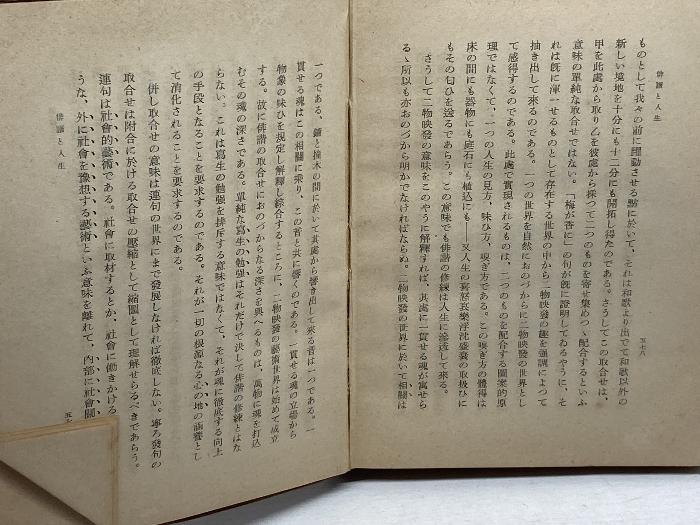 俳諧と人生
五七八
ものとして我々の前に躍動させる點に於いて、それは和歌より出でて和歌以外の
新しい境地を十分にも十二分にも開拓し得たのである。さうしてこの取合せは、
甲を此處から取り乙を彼處から採つて二つのものを寄せ集めつゝ配合するといふ
意味の單純な取合せではない。「梅が香に」の句が既に證明してゐるやうに、そ
れは既に渾一せるものとして存在する世界の中から二物映發の趣を強調によつて
抽き出して來るのである。一つの世界を自然におのづからに二物映發の世界とし
て感得するのである。此處で實現されるものは、二つのものを配合する圖案的原
理ではなくて、一つの人生の見方、味ひ方、嗅ぎ方である。この嗅ぎ方の體得は
床の間にも器物にも庭石にも植込にも——又人生の喜怒哀樂浮沈盛衰の取扱ひに
もその匂ひを送るであらう。この意味でも俳諧の修練は人生に滲透して來る。
さうして二物映發の意味をこのやうに解釋すれば、其處に一貫せる魂が寓せら
るゝ所以も亦おのづから明かでなければならぬ。二物映發の世界に於いて相關は
一つである、鐘と撞木の間に於いて其處から響き出して來る音は一つである。一
貫せる魂はこの相關に乘り、この音と共に響くのである。一貫せる魂の立場から
物象の味ひを規定し解釋し綜合するところに、二物映發の藝術世界は始めて成立
する。故に俳諧の取合せにおのづからなる深さを與へるものは、萬物に魂を打込
むその魂の深さである。單純な寫生の勉強はそれだけで決して俳諧の修練とはな
らない。これは寫生の勉強を排斥する意味ではなくて、それが魂に徹底する向上
の手段となることを要求するのである。それが一切の根源なる心の地の涵養とし
て消化されることを要求するのである。
併し取合せの意味は連句の世界にまで發展しなければ徹底しない。寧ろ發句の
取合せは附合に於ける取合せの壓縮として縮圖として理解せらるべきであらう。
連句は社會的藝術である。社會に取材するとか、社會に働きかける
うな、外に社會を豫想する藝術といふ意味を離れて、内部に社會關
俳諧と人生
五七